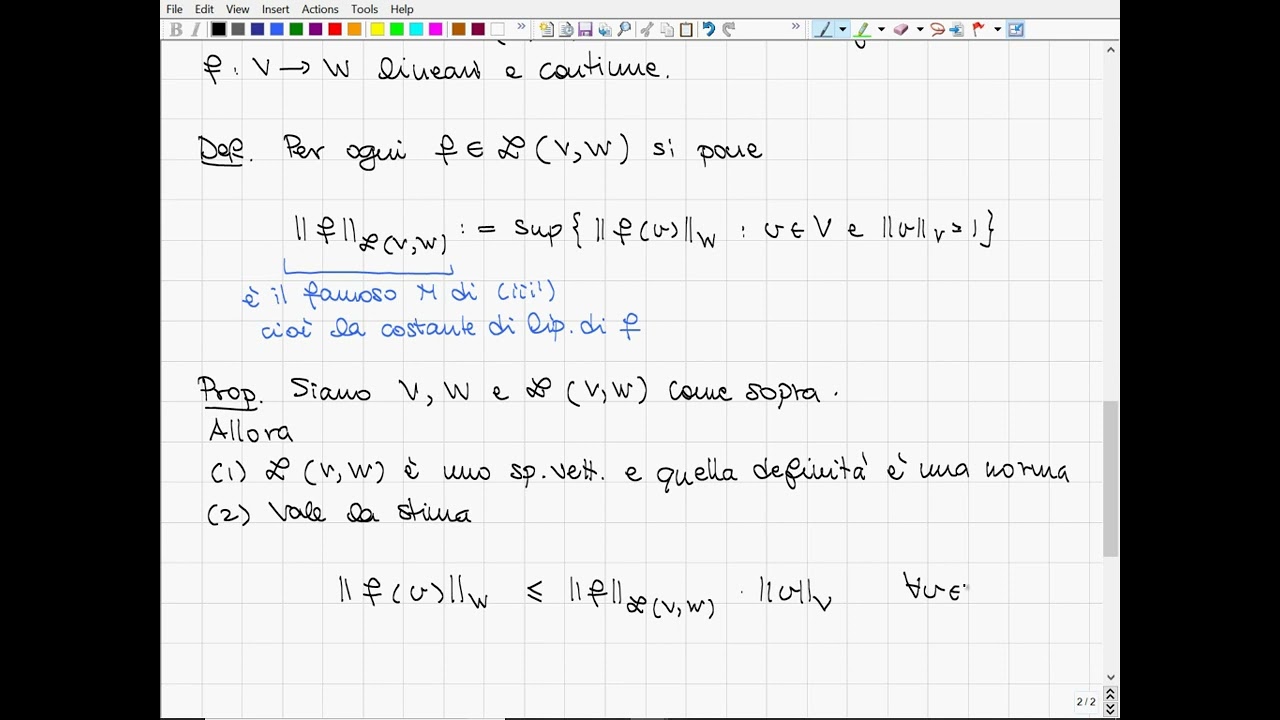 File Edit View Insert Actions Tools Help
B I
f : V → W lineari e continue.
Def. Per ogni f ∈ ℒ(V,W) si pone
‖f‖ℒ(V,W) := sup{ ‖f(v)‖W : v ∈ V e ‖v‖V = 1 }
è il famoso M di (iii')
cioè la costante di Lip. di f
Prop. Siano V, W e ℒ(V,W) come sopra.
Allora
(1) ℒ(V,W) è uno sp. vett. e quella definita è una norma
(2) Vale la stima
‖f(v)‖W ≤ ‖f‖ℒ(V,W) · ‖v‖V ∀v ∈
2 / 2